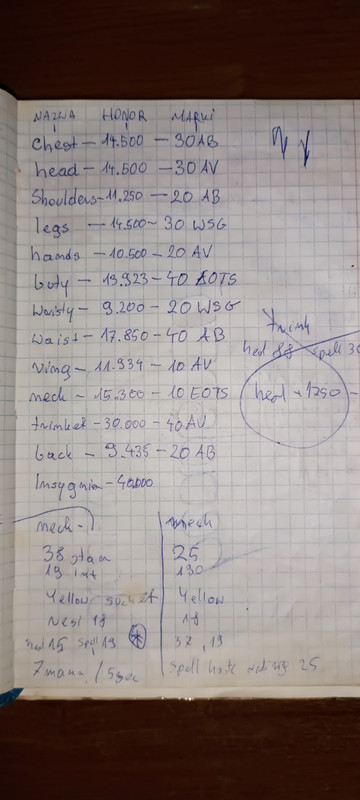 NAZWA HONOR MARKI
Chest - 14.500 - 30 AB
head - 14.500 - 30 AV
Shoulders - 11.250 - 20 AB
legs - 14.500 - 30 WSG
hands - 10.500 - 20 AV
buty - 13.923 - 40 EOTS
Wristy - 9.200 - 20 WSG
waist - 17.850 - 40 AB
ring - 11.934 - 10 AV
neck - 15.300 - 10 EOTS
trinket - 30.000 - 40 AV
back - 9.435 - 20 AB
Insygnia - 40.000
trink
heal 88 spell 30
heal + 1250 -
neck - 1
38 stam
19 int
Yellow socket
resi 18
heal 15 spell 19
7 mana / 5 sec
neck
25
130
Yellow
18
37, 19
Spell haste rating 25